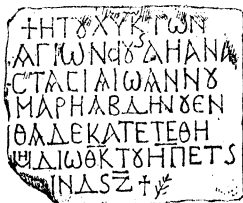 +ΗΤΟΥΧΥΚΤΩΝ
ΑΓΙΩΝ ΑΗΑΝΑ
CΤΑCΙΑΙΩΑΝΝΟΥ
ΜΑΡΗΑΒΔΗΝΟΥΕΝ
ΘΑΔΕΚΑΤΕΤΕΘΗ
ΔΙΩΘΚΤΟΥΗΠΕΤS
ΙΝΔSΖ†